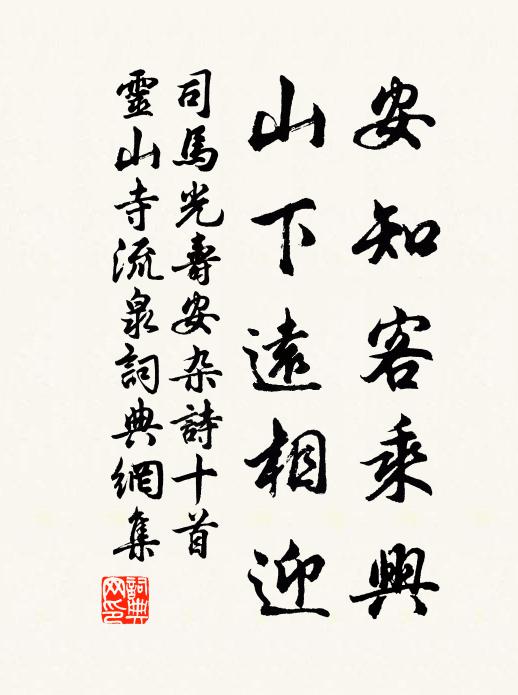 安知客乘興
山下遠相迎
司馬光壽安杂詩十首
靈山寺流泉詞典網集
詞典
网印